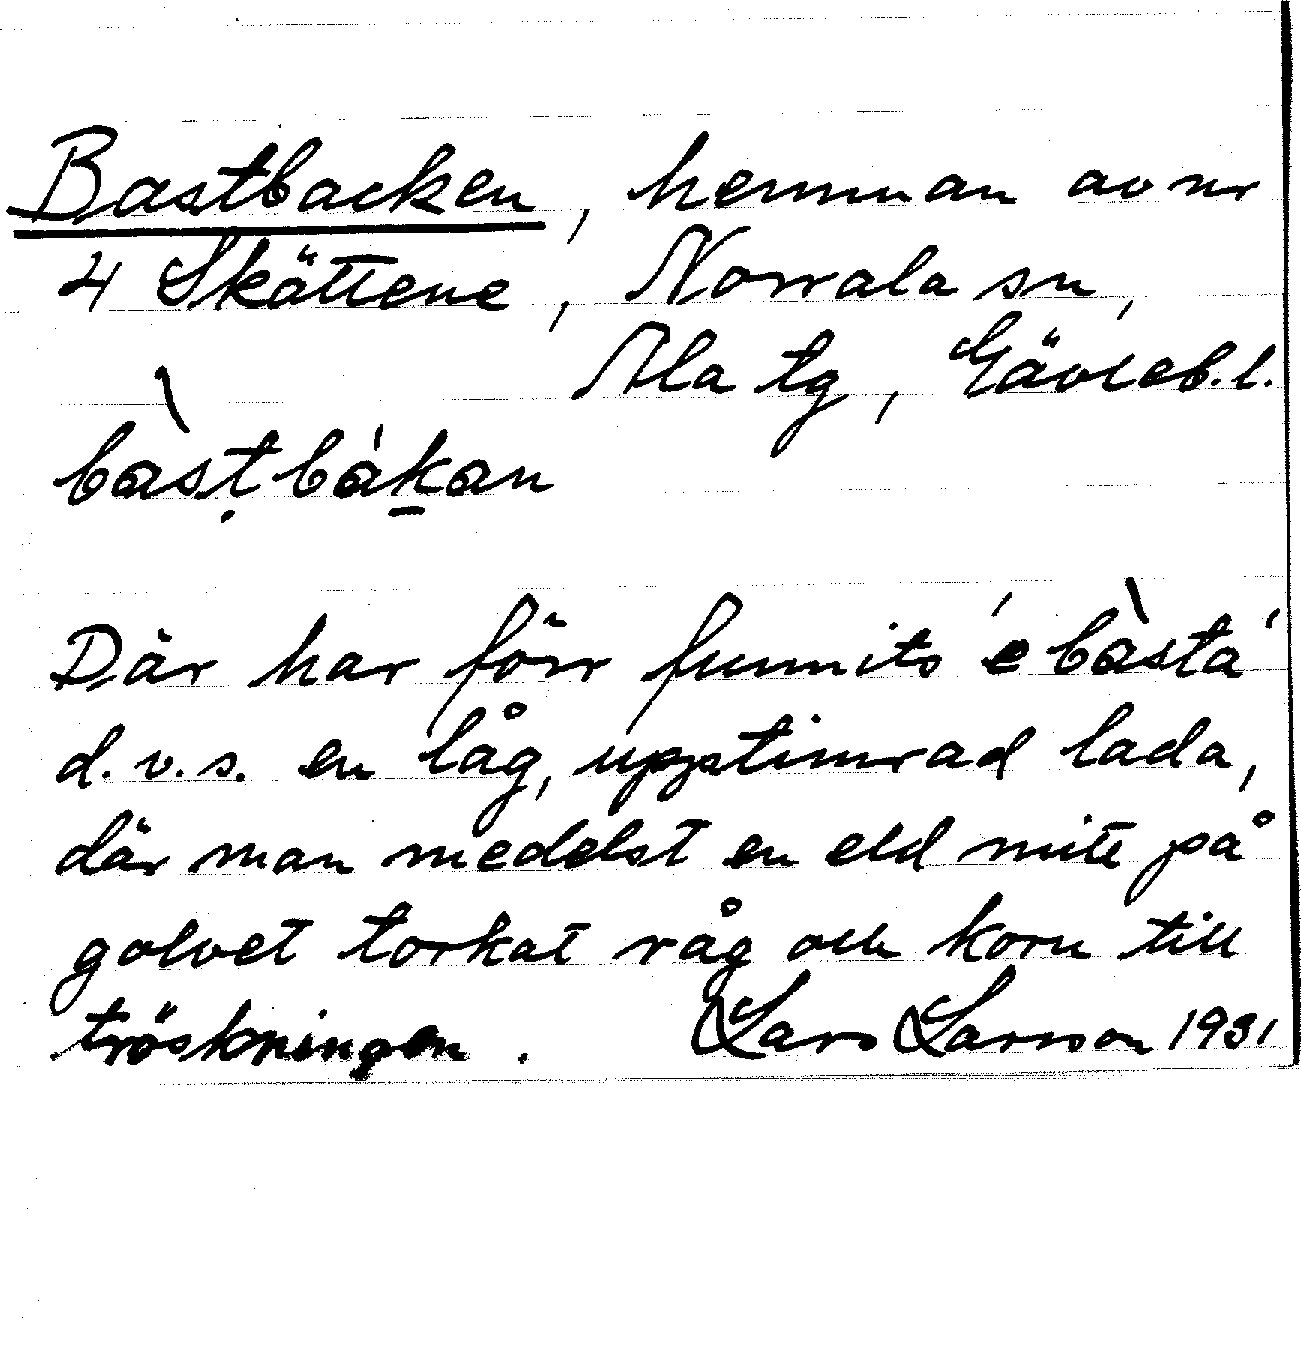 Bastbacken, hemman av nr
4 Skättene, Norrala sn,
Ala tg, Gävleb.l.
bàsṭbákan
Där har förr funnits 'e bàsta'
d.v.s. en låg, upptimrad lada,
där man medelst en eld mitt på
golvet torkat råg och korn till
tröskningen. Lars Larsson 1931